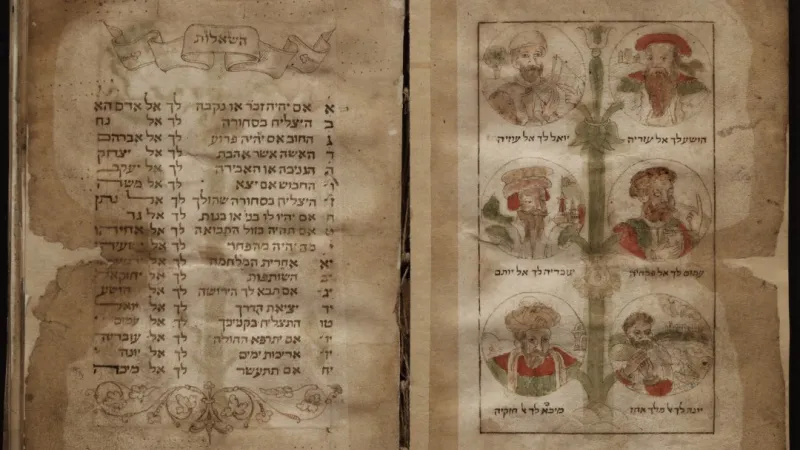 השאלות
א אם יהיה זכר או נקבה לך אל אדם הא
ב היצליח בסחורה לך אל נח
ג החוב אם יהיה פרוע לך אל אברהם
ד האשה אשר אהבת לך אל יצחק
ה הגניבה או האבידה לך אל יעקב
ו החבוש אם יצא לך אל
ז היצליח בסחורה שהולך לך אל נתן
ח אם יהיו לו בני או בנות לך אל גד
אם תהיה בזול התבואה לך אל
י מה יהיה מהפחד לך אל
יא אחרית המלחמה לך אל
השותפות לך אל יחזקאל
יג אם תבא לך הירושה לך אל הושע
יד יציאת הדרך לך אל יואל
טו התצליח בקנינך לך אל עמוס
יו אם יתרפא החולה לך אל עובדיה
אריכות ימים לך אל יונה
יח אם תתעשר לך אל מיכה
הושע לך אל עזריה
יואל לך אל עוזיה
עמוס לך אל
עובדיה לך אל יותם
יונה לך אל מלך אחז
מיכא לך אל חזקיה